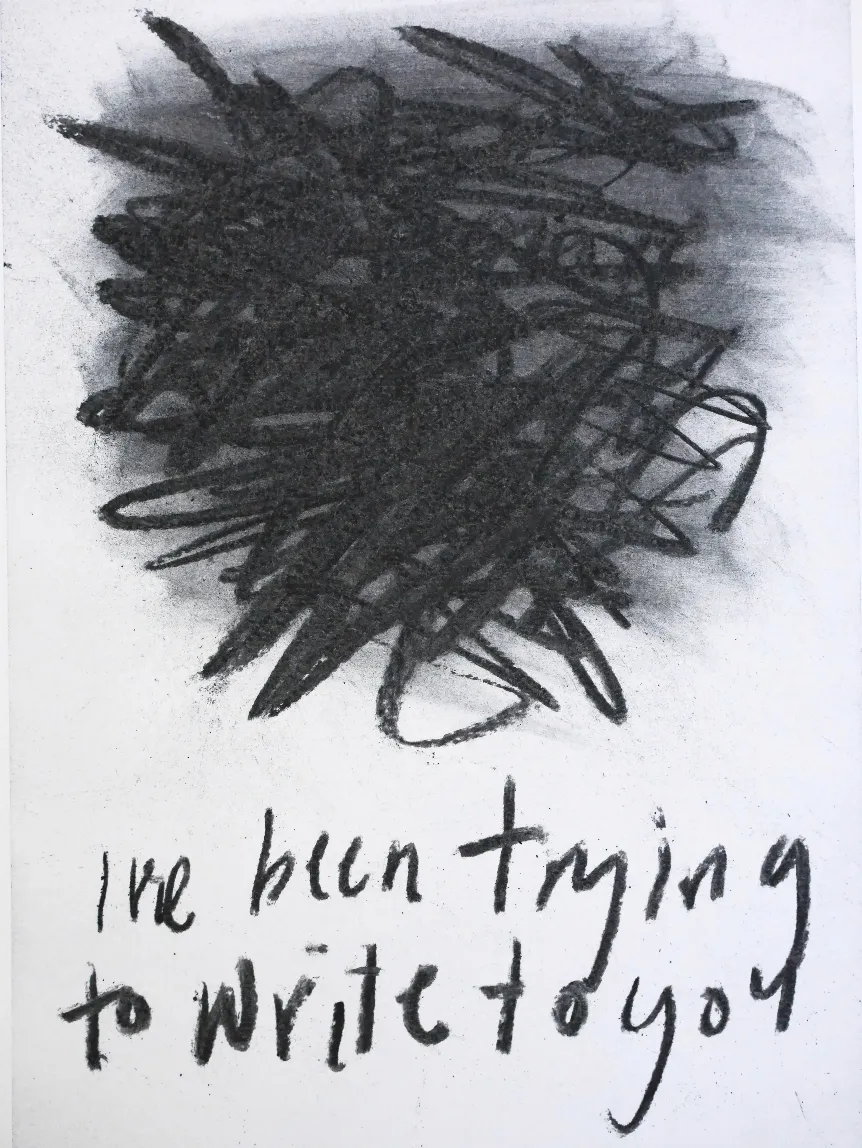 Ive been trying
to write to you